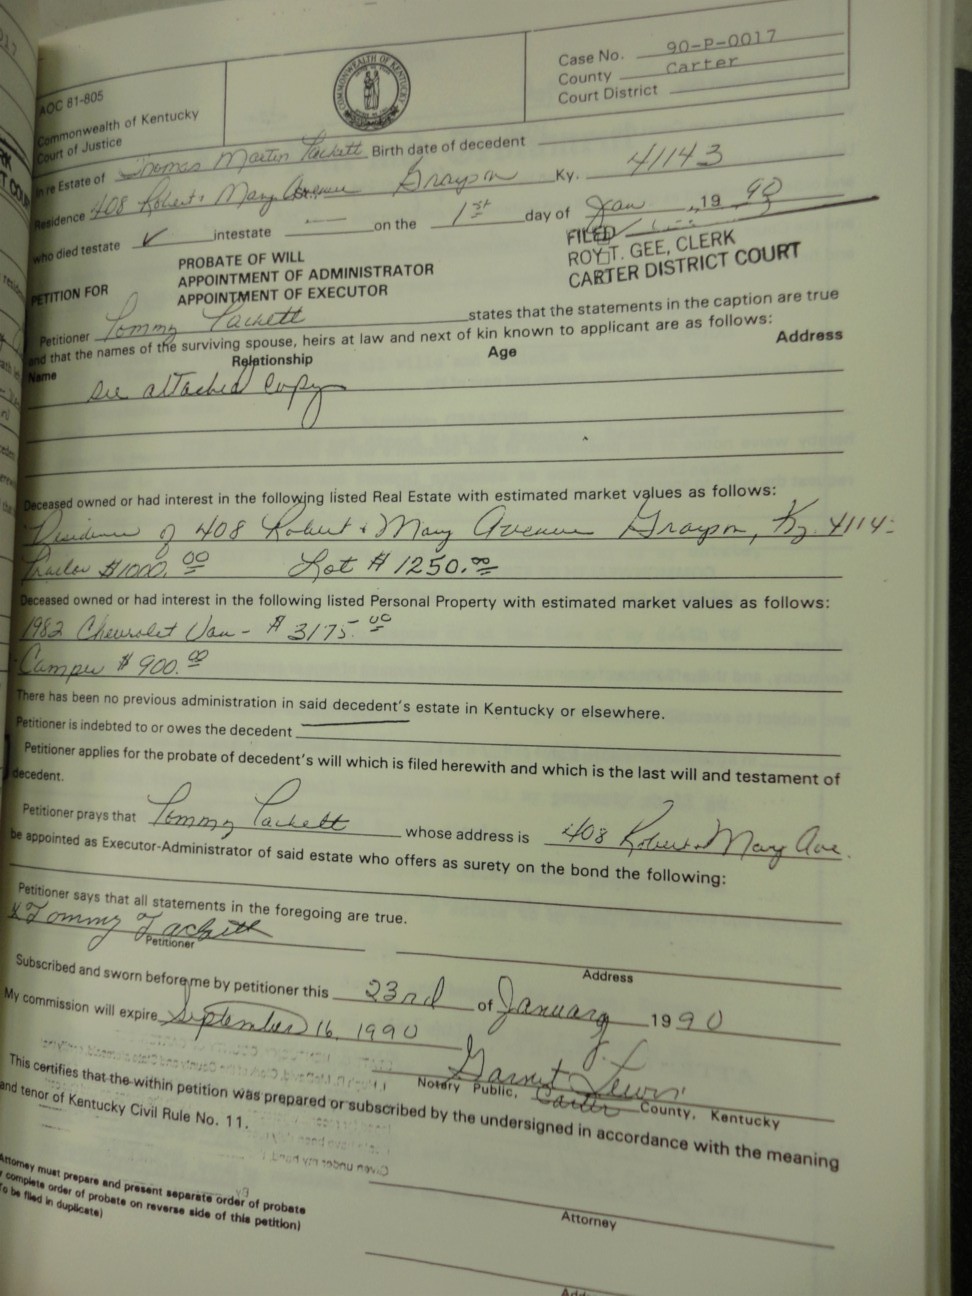 Case No. 90-P-0017
County Carter
Court District
AOC 81-805
Commonwealth of Kentucky
Court of Justice
COMMONWEALTH OF KENTUCKY
In re Estate of Thomas Martin Tackett Birth date of decedent
Residence 408 Robert & Mary Avenue Grayson Ky. 41143
who died testate ✓ intestate on the 1st day of Jan , 19 90
FILED
ROY T. GEE, CLERK
CARTER DISTRICT COURT
PROBATE OF WILL
PETITION FOR APPOINTMENT OF ADMINISTRATOR
APPOINTMENT OF EXECUTOR
Petitioner Tommy Tackett states that the statements in the caption are true
and that the names of the surviving spouse, heirs at law and next of kin known to applicant are as follows:
Name Relationship Age Address
see attached copy
Deceased owned or had interest in the following listed Real Estate with estimated market values as follows:
Residence of 408 Robert & Mary Avenue Grayson, Ky. 4114
Trailer $1000.00 Lot $1250.00
Deceased owned or had interest in the following listed Personal Property with estimated market values as follows:
1982 Chevrolet Van - $3175.00
Camper $900.00
There has been no previous administration in said decedent's estate in Kentucky or elsewhere.
Petitioner is indebted to or owes the decedent
Petitioner applies for the probate of decedent's will which is filed herewith and which is the last will and testament of
decedent.
Petitioner prays that Tommy Tackett whose address is 408 Robert & Mary Ave.
be appointed as Executor-Administrator of said estate who offers as surety on the bond the following:
Petitioner says that all statements in the foregoing are true.
x Tommy Tackett
Petitioner Address
Subscribed and sworn before me by petitioner this 23rd of January 19 90
My commission will expire September 16, 1990
Garnet J. Lewis
Notary Public, Carter County, Kentucky
This certifies that the within petition was prepared or subscribed by the undersigned in accordance with the meaning
and tenor of Kentucky Civil Rule No. 11.
Attorney must prepare and present separate order of probate
complete order of probate on reverse side of this petition)
To be filed in duplicate)
Attorney